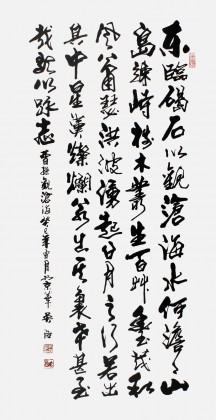 東臨碣石以觀滄海水何澹〻山
島竦峙樹木叢生百草豐茂秋
風蕭瑟洪波湧起日月之行若出
其中星漢燦爛若出其裏幸甚至
哉歌以詠志 曹操觀滄海